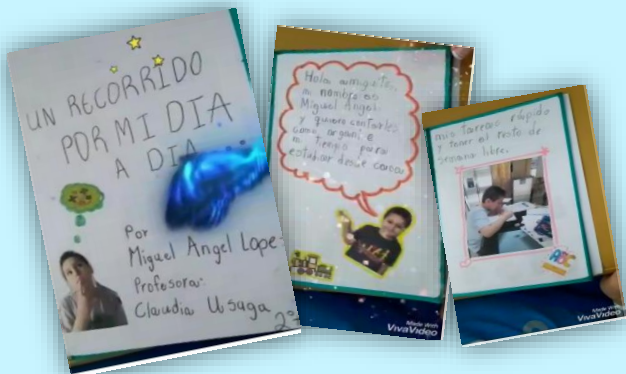 UN RECORRIDO
POR MI DIA
A DIA
Por
Miguel Angel Lope
Profesora:
Claudia Usaga
2º
Hola amiguitos,
mi nombre es
Miguel Angel
y quiero contarles
como organice
mi tiempo para
estudiar desde casa
Made with
VivaVideo
mis tareas rápido
y tener el resto de
semana libre.
ABC
Made with
VivaVideo